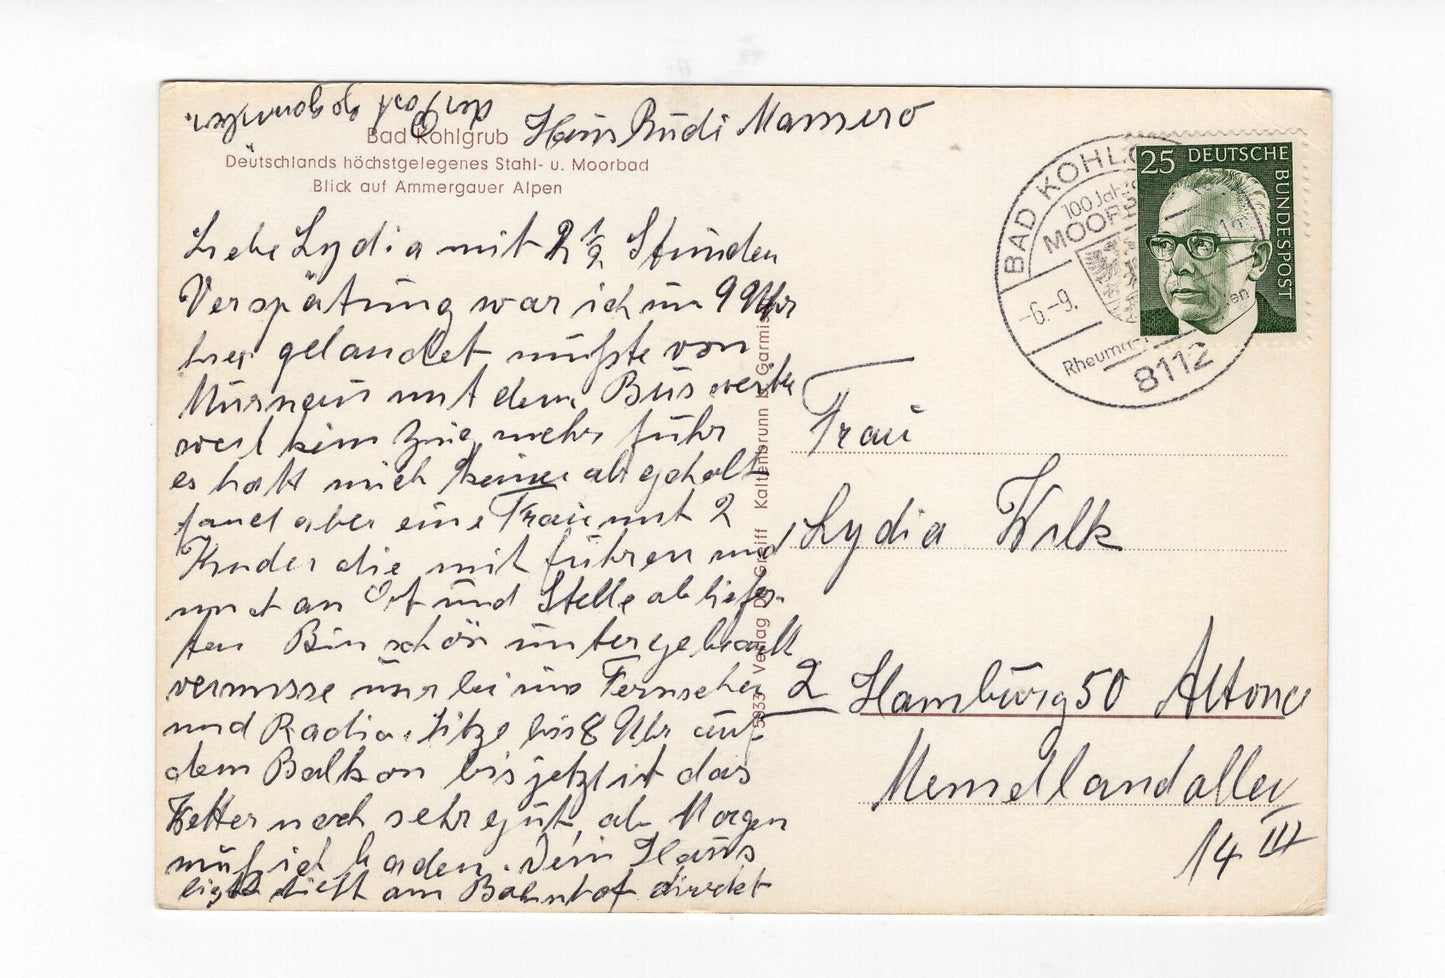 der Post gegenüber.
Hans Rudi Mamero
Bad Kohlgrub
Deutschlands höchstgelegenes Stahl- u. Moorbad
Blick auf Ammergauer Alpen
Liebe Lydia mit 2 1/2 Stunden
Verspätung war ich um 9 Uhr
hier gelandet mußte von
Murnau mit dem Bus weiter
weil kein Zug mehr fuhr
es hatt mich keiner abgeholt
fand aber eine Frau mit 2
Kinder die mit führen und
mich an Ort und Stelle abliefer-
ten Bin schön untergebracht
vermisse nur bei uns Fernseher
und Radio. Sitze bis 8 Uhr auf
dem Balkon bis jetzt ist das
Wetter noch sehr gut, ab Morgen
muß ich baden. Dein Haus
liegt dicht am Bahnhof direkt
5933 Verlag De Greiff Kaltenbrunn b. Garmisch
BAD KOHLG
100 Jahre
MOORB
-6.-9.
Rheuma-
en
8112
25 DEUTSCHE
BUNDESPOST
Frau
Lydia Wilk
2 Hamburg 50 Altona
Memellandallee
14 III